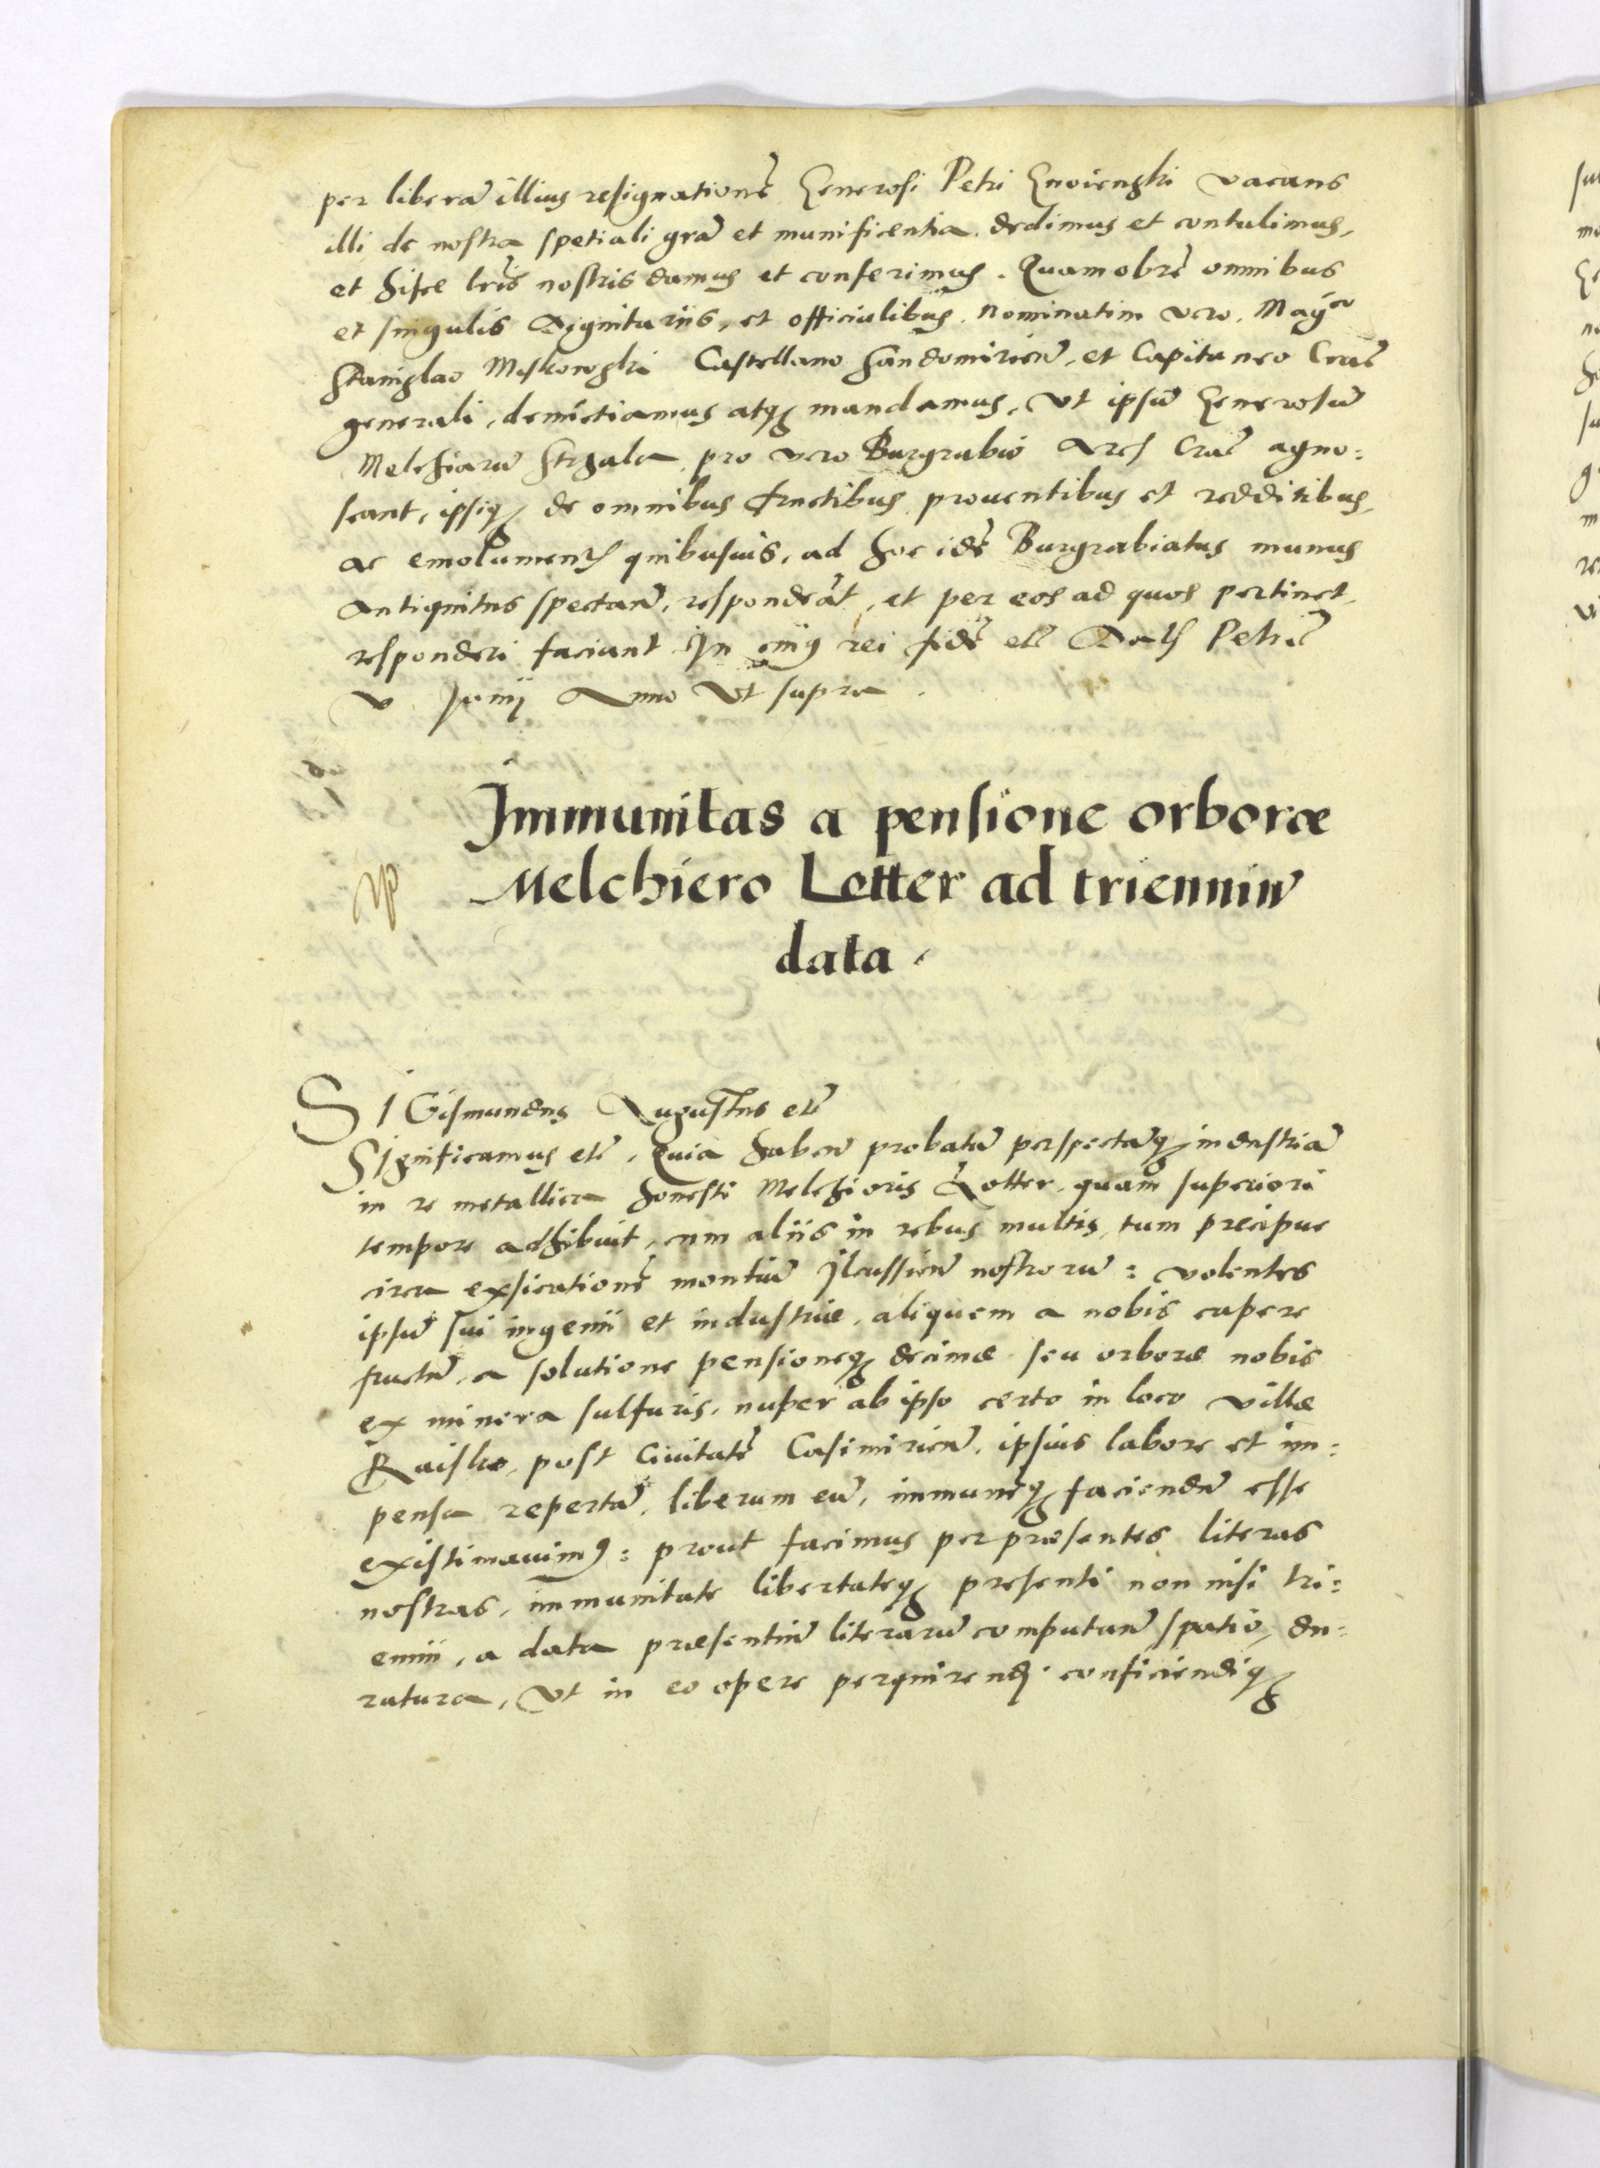 per liberā illius resignationē Generosi Petri Gnoiensky vacans
illi de nostra spetiali grā et munificentia dedimus et contulimus,
et hisce lr̄is nostris damus et conferimus. Quamobrē omnibus
et singulis Dignitariis, et officialibus, nominatim vero, Mag̃co
Stanislao Miskowsky Castellano Sandomirieñ, et Capitaneo Crac̄
generali, atq3 mandamus, vt ipsū Generosū
Melchiarū pro vero Burgrabio Arcs Crac̄ agno:
scant, ipsiq3 de omnibus fructibus, prouentibus et redditibus,
ac emolumentꝭ quibusuis, ad hoc idē Burgrabiatus munus
antiquitus spectañ, respondeāt, et per eos ad quos pertinet,
responderi faciant. In cuiꝰ rei fidē etc̄ Datꝭ Petric̄
v Junij Anno Vt supra.
Immunitas a pensione orboræ
Melchiero Lotter ad trienniū
data.
SIGismundus Augustus etc̄
Significamus etc̄. Quia habeñ probatā perspectāq3 industriā
in re metallica honesti Melchioris Lotter, quam superiori
tempore adhibuit, cum aliis in rebus multis, tum precipue
circa exsicationē montiū Ilcussieñ nostrorū: volentes
ipsū sui ingenii et industriæ, aliquem a nobis capere
fructū, a solutione pensioneq3 decimæ seu orboræ nobis
ex minera sulfuris, nuper ab ipso certo in loco villæ
Raisko, post Ciuitatē Casimirieñ, ipsius labore et im:
pensa repertā, liberum eū, immunēq3 faciendū esse
existimauimꝰ: prout facimus per præsentes literas
nostras, immunitate libertateq3 presenti non nisi tri:
ennii, a data præsentiū literarū computañ spatio, du:
ratura, Vt in eo opere perquirendi conficiendiq3